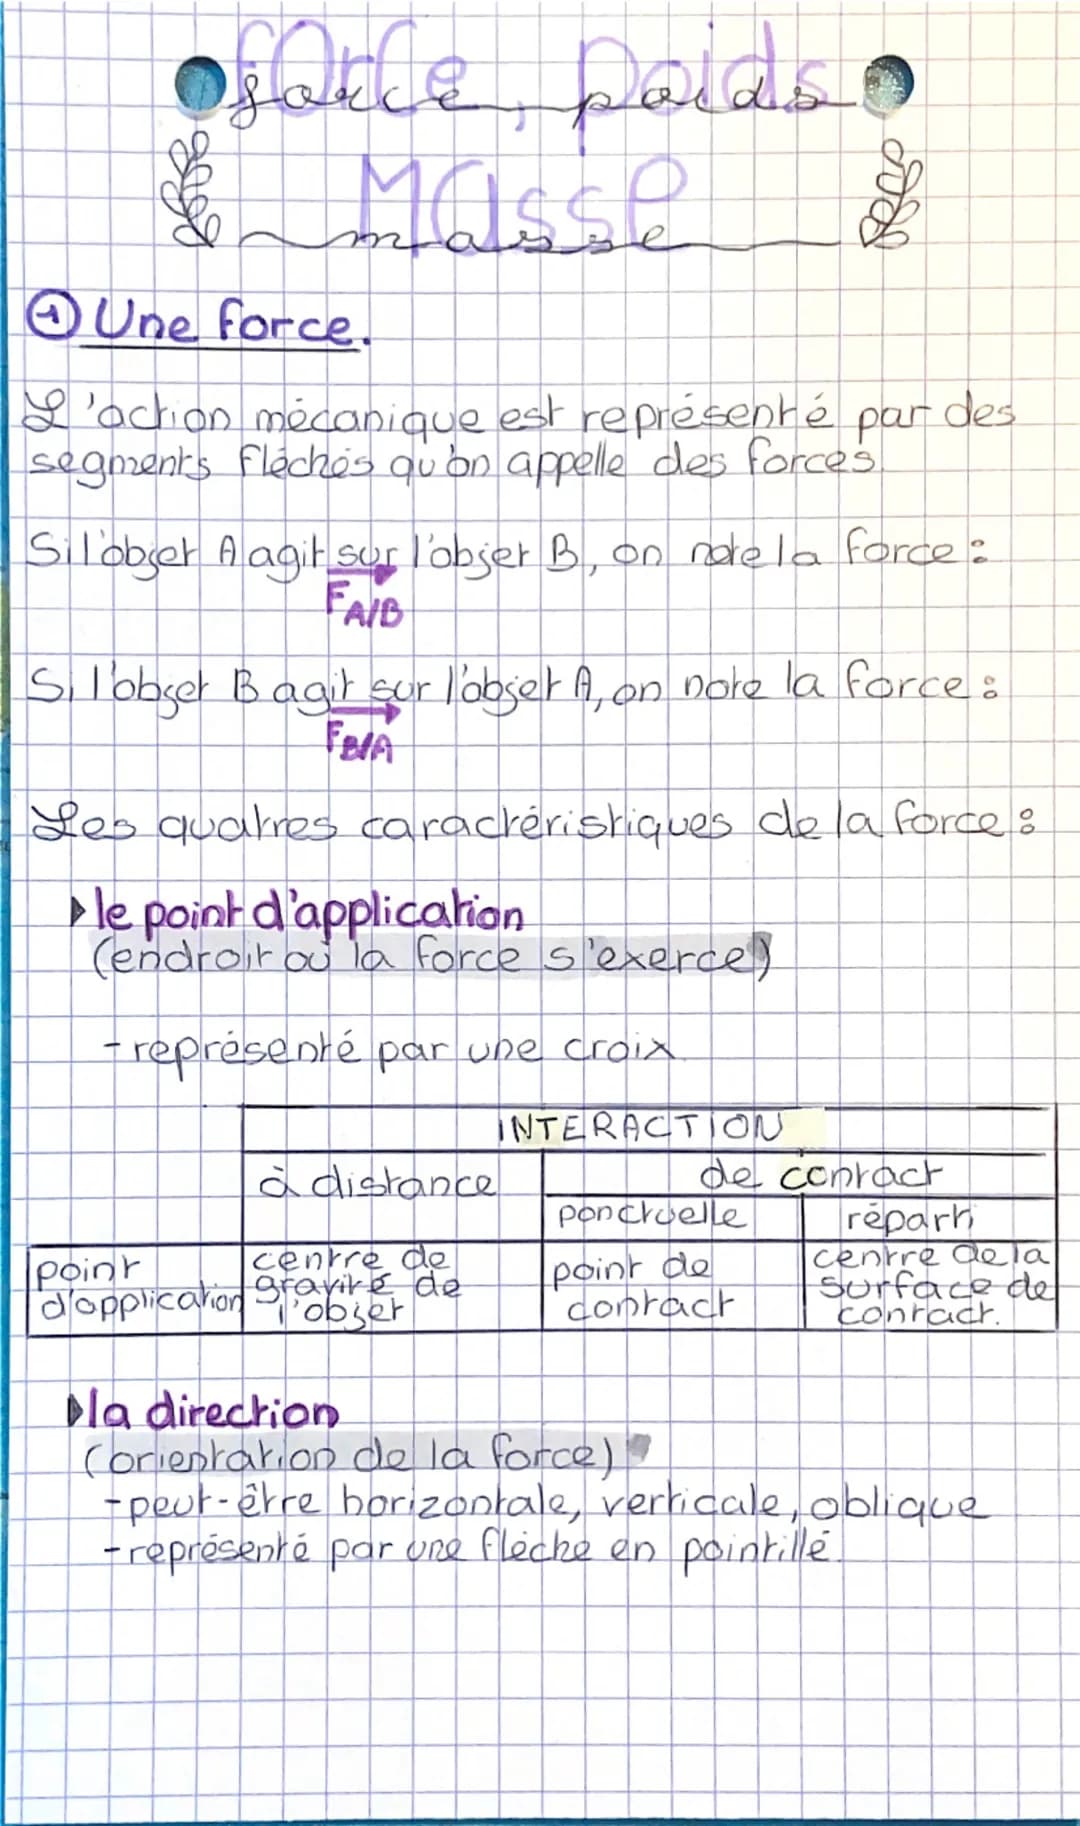 force, poids
force, poids
Masse
masse
① Une force.
L'action mécanique est représenté par des
segments fléchés qu'on appelle des forces.
Si l'objet A agit sur l'objet B, on note la force :
F A/B
Si l'objet B agit sur l'objet A, on note la force :
F B/A
Les quatres caractéristiques de la force :
▸ le point d'application
(endroit où la force s'exerce)
- représenté par une croix
INTERACTION
à distance
de contact
ponctuelle
réparti
point
d'application
centre de
gravité de
l'objet
point de
contact
centre de la
surface de
contact.
▸ la direction
(orientation de la force)
- peut-être horizontale, verticale, oblique
- représenté par une flèche en pointillé.